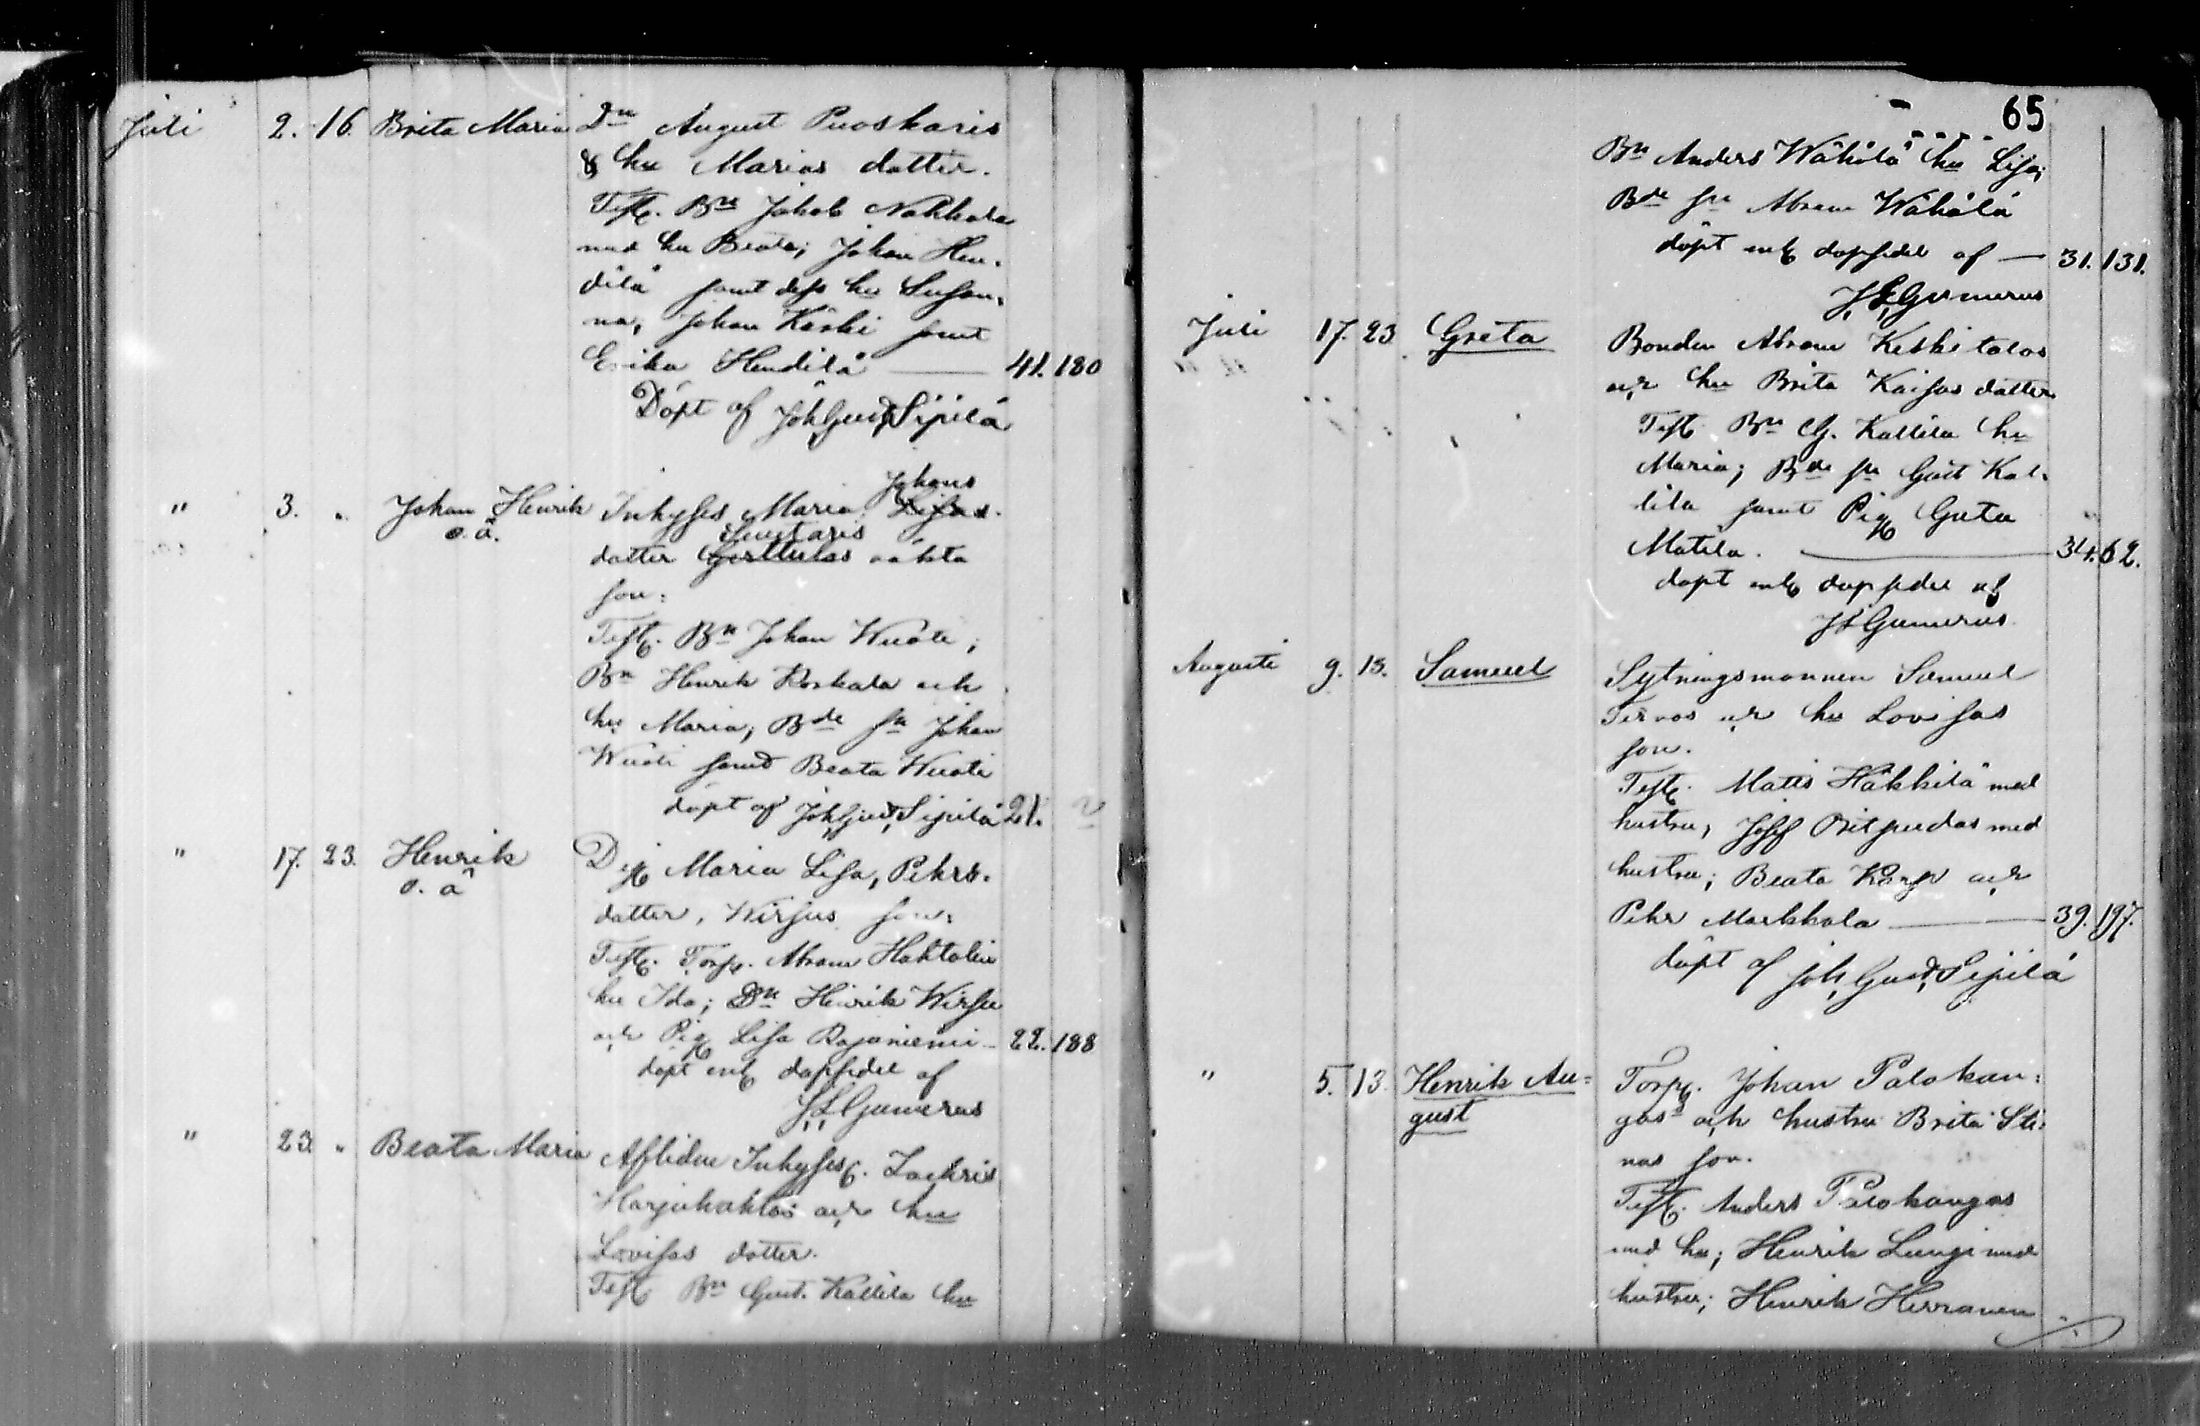 Juli 2. 16. Brita Maria Dn August Puoskaris
& hu Marias dotter.
Test. Bn Jakob Nokkala
med hu Beata; Johan Hen-
dilä samt dess hu Susan-
na, Johan Koski samt
Erika Hendilä — 41. 180
Döpt af Joh Gust Sipilä
" 3. " Johan Henrik Inhyses Maria Johans Lisas
o. ä.
dotter Suutaris Gerttulas oäkta
son:
Test. Bn Johan Wuoti;
Bn Henrik Roskala och
hu Maria; Bde sn Johan
Wuoti samt Beata Wuoti
döpt af Joh Gust Sipilä 21.
" 17. 23. Henrik Maria Lisa, Pehrs-
o. ä
dotter, Wirsus son:
Test. Torp. Abram
hu Ida; Dn Henrik Wirsu
och Pig Lisa Rajaniemi - 22. 188
döpt enl dopsedel af
J L Gumerus
" 23. " Beata Maria Aflidne Inhyses. Zachris
Harjuhahtos och hu
Lovisas dotter.
Test Bn Gust. Kallila hu
65
Bn Anders Wähälä hu Lisa;
Bde sn Abram Wähälä
döpt enl dopsedel af — 31. 131.
J L Gumerus
Juli 17. 23 Greta Bonden Abram Keskitalos
och hu Brita Kaisas dotter
Test Bn G. Kallila hu
Maria; Bde sn Gust Kal-
lila samt Pig Greta
Matila. — 34. 62.
döpt enl dopsedel af
J L Gumerus
Augusti 9. 13. Samuel Sytningsmannen Samuel
Tervos och hu Lovisas
son.
Test. Matts Häkkilä med
hustru, Josef Pitpudas med
hustru; Beata och
Pehr Markkala — 39. 197.
döpt af Joh, Gust, Sipilä
" 5. 13. Henrik Au= Torp. Johan Palokan=
gust gas och hustru Brita Sti-
nas son.
Test. Anders Palokangas
med hu; Henrik med
hustru; Henrik Herranen